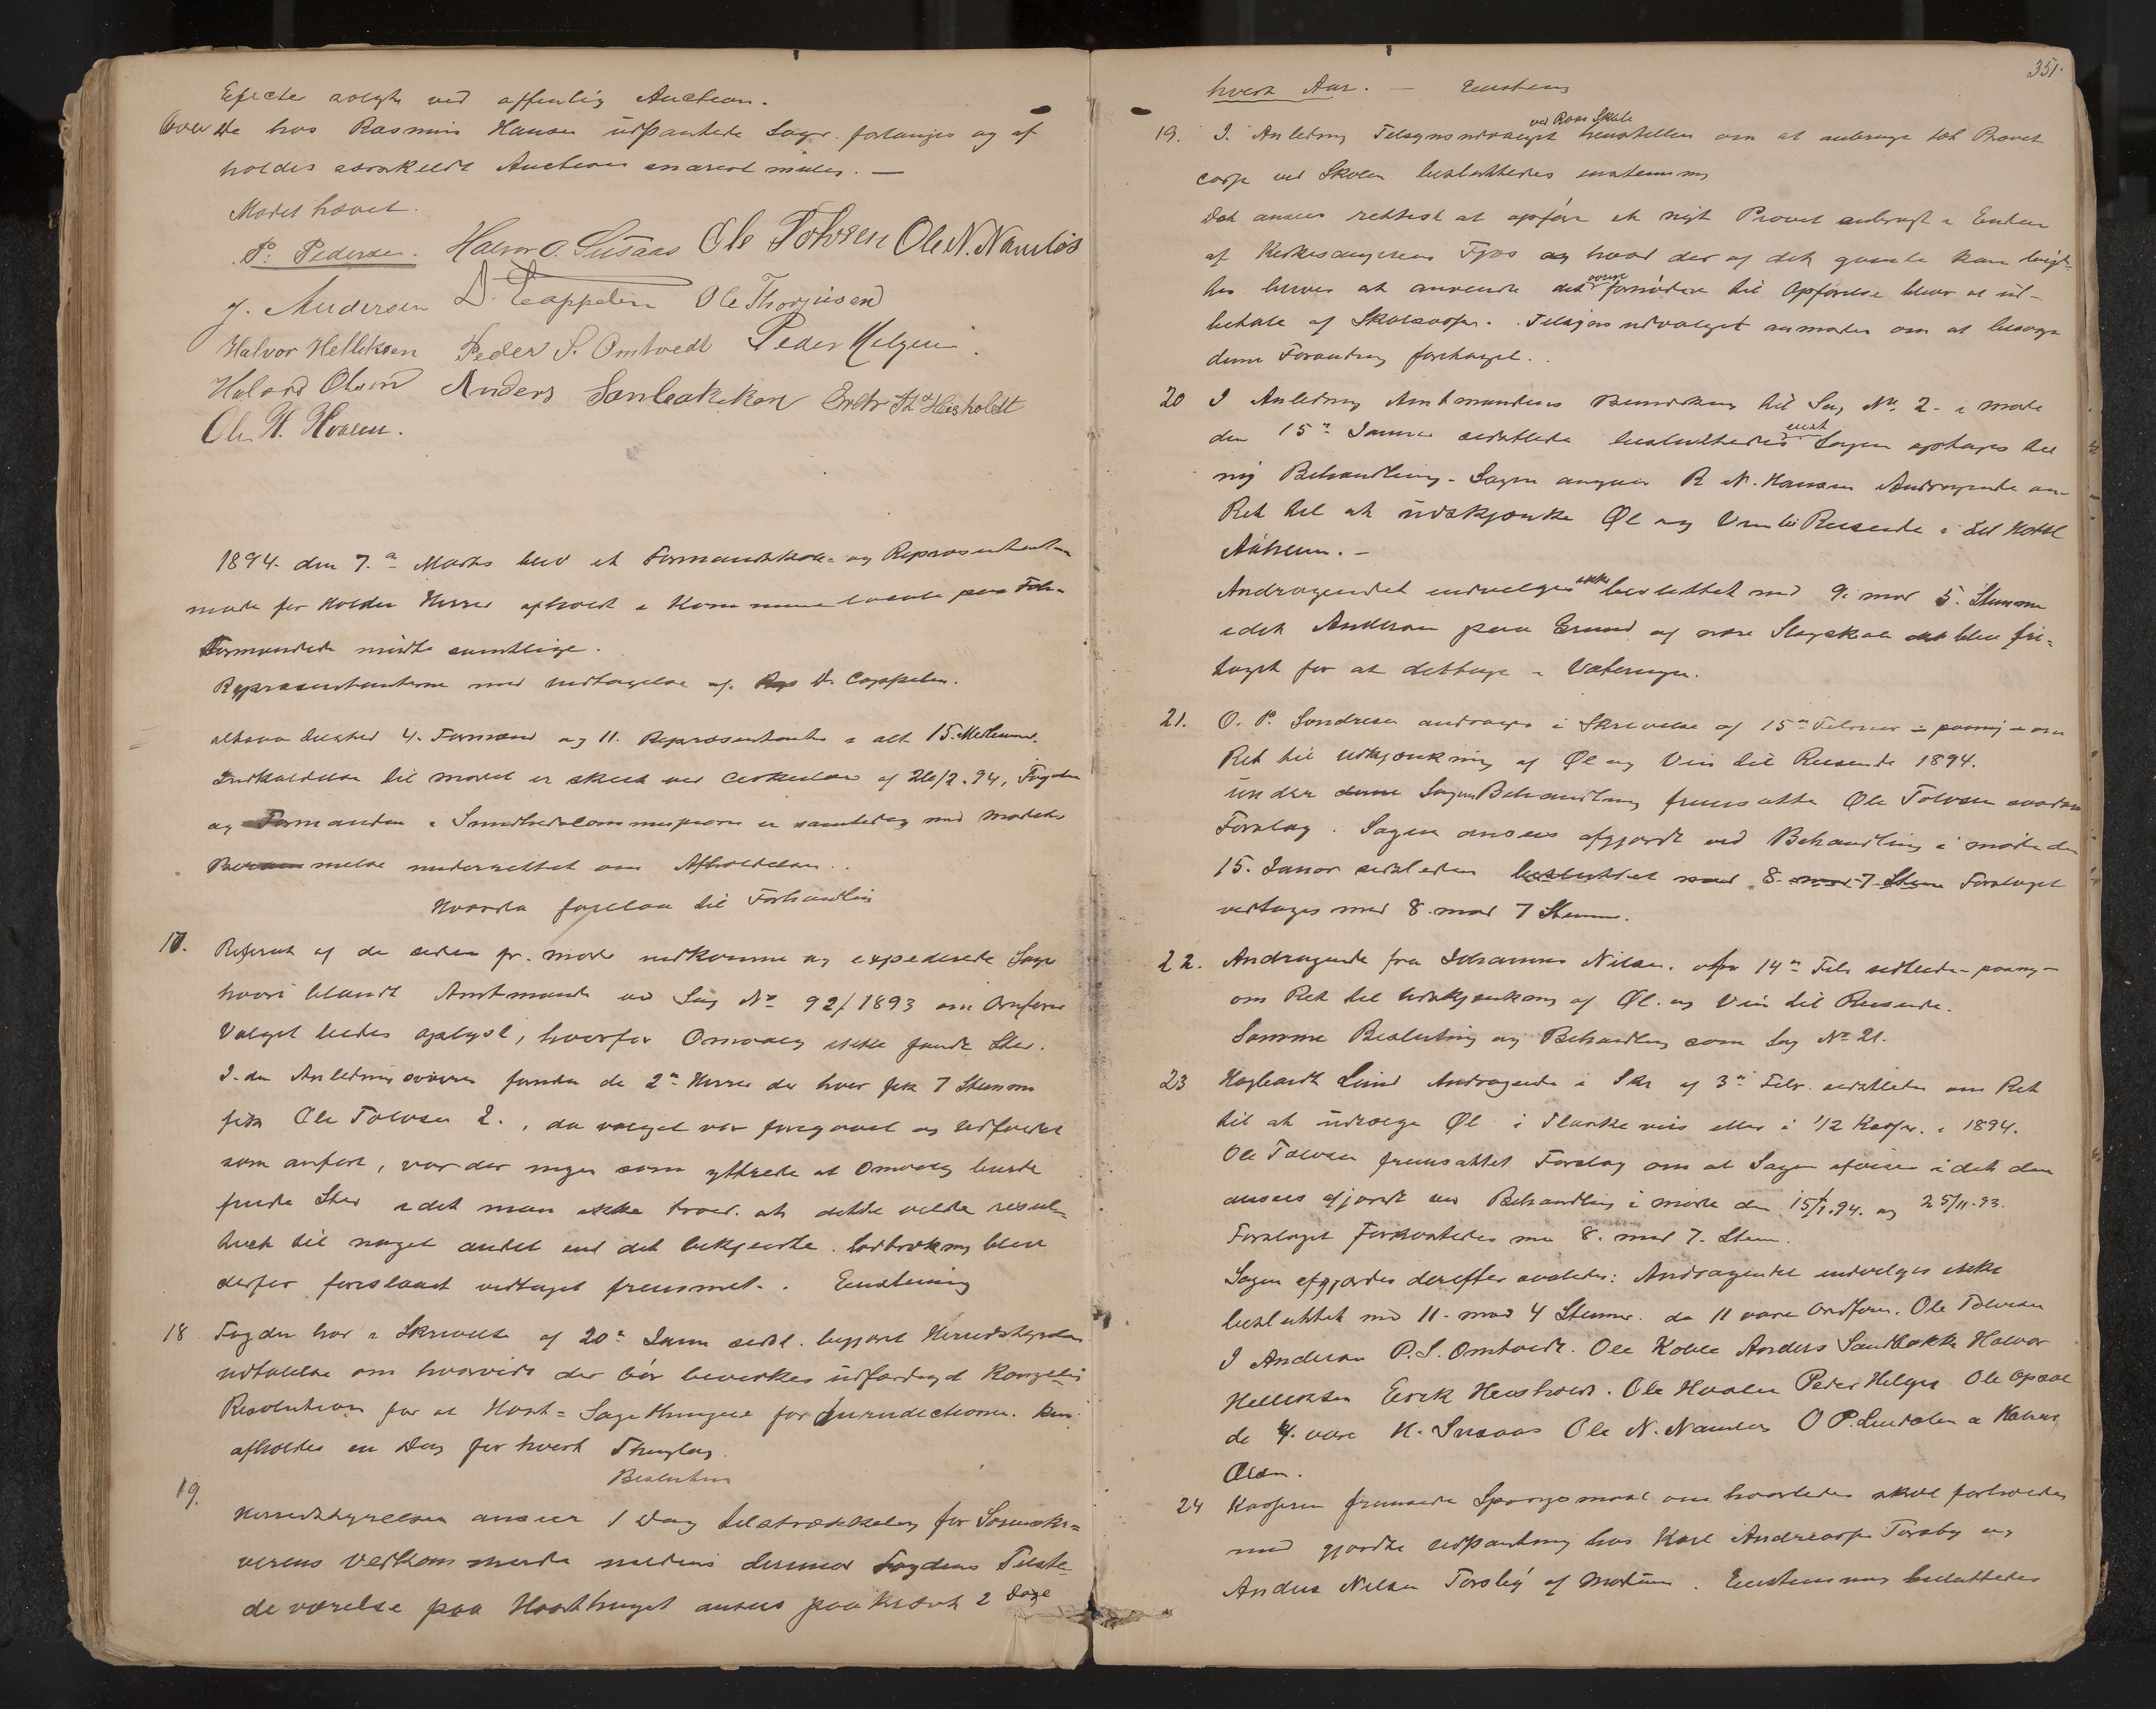 Efecter solgte ved offentlig Auction.
Over de hos Rasmus Hansen udpantede Sager forlanges og af
holdes særskeldt Auction snarest mulig. —
Mødet hævet.
P. Pedersen. Halvor O. Susaas Ole Tolvsen Ole N. Namløs
J. Andersen D. Cappelen Ole Thorgusen
Halvor Helliksen Peder S. Omtvedt Peder Helgen
Halvord Olsen Anders Sanbakken Erik Heisholdt
Ole H. Hvalen.
1894. den 7.de Marts blev et Formandskabs- og Repræsentant-
møde for Holden Herred afholdt i Kommunelocale paa
Formændede mødte samtlige.
Repræsentanterne med undtagelse af D. Cappelen.
altsaa tilsted 4. Formænd og 11. Repræsentanter i alt 15. Medlemmer.
Indkaldelse til mødet er skeet ved Cirkulære af 26/2.94, Fogden
og Formanden i Sundhedscommissionen er samtidig med Mødets
Berammelse underrettet om Afholdelsen.
Hvorda forelaa til Forhandling
17. Referat af de siden fr. møde indkomne og expederede Sager
hvori blandt Amtmande ad Sag No 92/1893 om Ordfører
Valget ledes oplyst, hvorfor Omvalg ikke fandt Sted.
I den Anledning svares fandt de 2de Herrer der hver fik 7 Stemmer
fik Ole Tolvsen 2., da valget var foregaaet og udfaldet
som anført, var der ingen som yttrede at Omvalg burde
finde Sted idet man ikke troede at dette vilde resul-
teret til noget andet end det bekjendte. Lodtrækning blev
derfor foreslaaet vedtaget fremmet. Enstemig
18 Fogden har i Skrivelse af 20de Janu sidstl. begjært Herredstyrets
udtalelse om hvorvidt der bør bevirkes udfærdiget Kongelig
Resolution for at Høst- Sagethinget for Jurisdictionen kun
afholdes en Dag for hvert Thinglag.
Beslutning
19. Herredstyrelsen anser 1 Dag tilstrækkelig for Sorenskri-
verens Vedkommende medens derimod Fogdens Tilste-
deværelse paa Høstthinget ansees paakrævet 2 Dage
351.
hvert Aar. — Enstemig
ved Raas Skole
19. I. Anledning Tilsynsudvalget henstiller om at anbringe det Privet
ved Skolen besluttedes enstemmig
Det ansees rettest at opføre et nyt Privet anbragt i Enden
af Kirkesangerens Fjøs og hvad der af det gamle kan
behøves at anvende det øvrige fornødne til Opførelse blive at ud-
betale af Skolekassen. Tilsynsudvalget anmodes om at besørge
denne Forandring foretaget.
20 I Anledning Amtmandens Bemærkning til Sag No. 2. i møde
den 15de Januar sidstleden besluttedes enst Sagen optages til
ny Behandling. Sagen angaar R. N. Hansen Andragende om
Ret til at udskjænke Øl og Vin til Reisende i sit Hotel
Aaheim. —
Andragendet indvilges ikke besluttet med 9. mod 5. Stemme
idet Andersen paa Grund af være Slægtskab blev fri-
taget for at deltage i Voteringen.
21. O. P. Sondresen andrager i Skrivelse af 15de Februar — paany — om
Ret til udskjænkning af Øl og Vin til Reisende 1894.
under denne Sagens Behandling fremsatte Ole Tolvsen saadan
Forslag. Sagen ansees afgjordt ved Behandling i møde den
15. Januar sidstleden besluttet med 8. mod 7 Stemme Forslaget
vedtages med 8. mod 7 Stemme.
22. Andragende fra Johannes Nilsen. af 14de Feb sidstleden — paany —
om Ret til Udskjænkning af Øl. og Vin til Reisende.
Samme Beslutning og Behandling som Sag No 21.
23 Hagbardt Lund Andragende i Skr af 3de Febr. sidstleden om Ret
til at udsælge Øl i Flaskevis eller i 1/2 Kasser. i 1894.
Ole Tolvsen fremsattet Forslag om at Sagen afvises idet den
ansees afgjordt ved Behandling i møde den 15/1.94. og 25/11.93.
Forslaget Forkastedes med 8. mod 7. Stem.
Sagen afgjordes derefter saaledes: Andragendet indvilges ikke
besluttet med 11. mod 4 Stemmer. de 11 vare Ordføren. Ole Tolvsen
J Andersen P. S. Omtvedt. Ole Kolle Anders Sandbakke Halvor
Helliksen Eirik Heisholdt. Ole Hvalen Peder Helgen Ole Opsal
de 4. vare H. Susaas Ole N. Namløs O P. Lindalen a Halvor
Olsen.
24 Kassereren fremsatte Spørgsmaal om hvorledes skal forholdes
med gjordte udpantning hos Karl Andreasse Torsby og
Anders Nilsen Torsby af Mælum. Enstemmig besluttedes